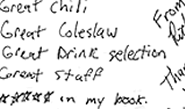 Great Chili
Great Coleslaw
Great Drink selection
Great Staff
☆☆☆☆☆ in my book.
From